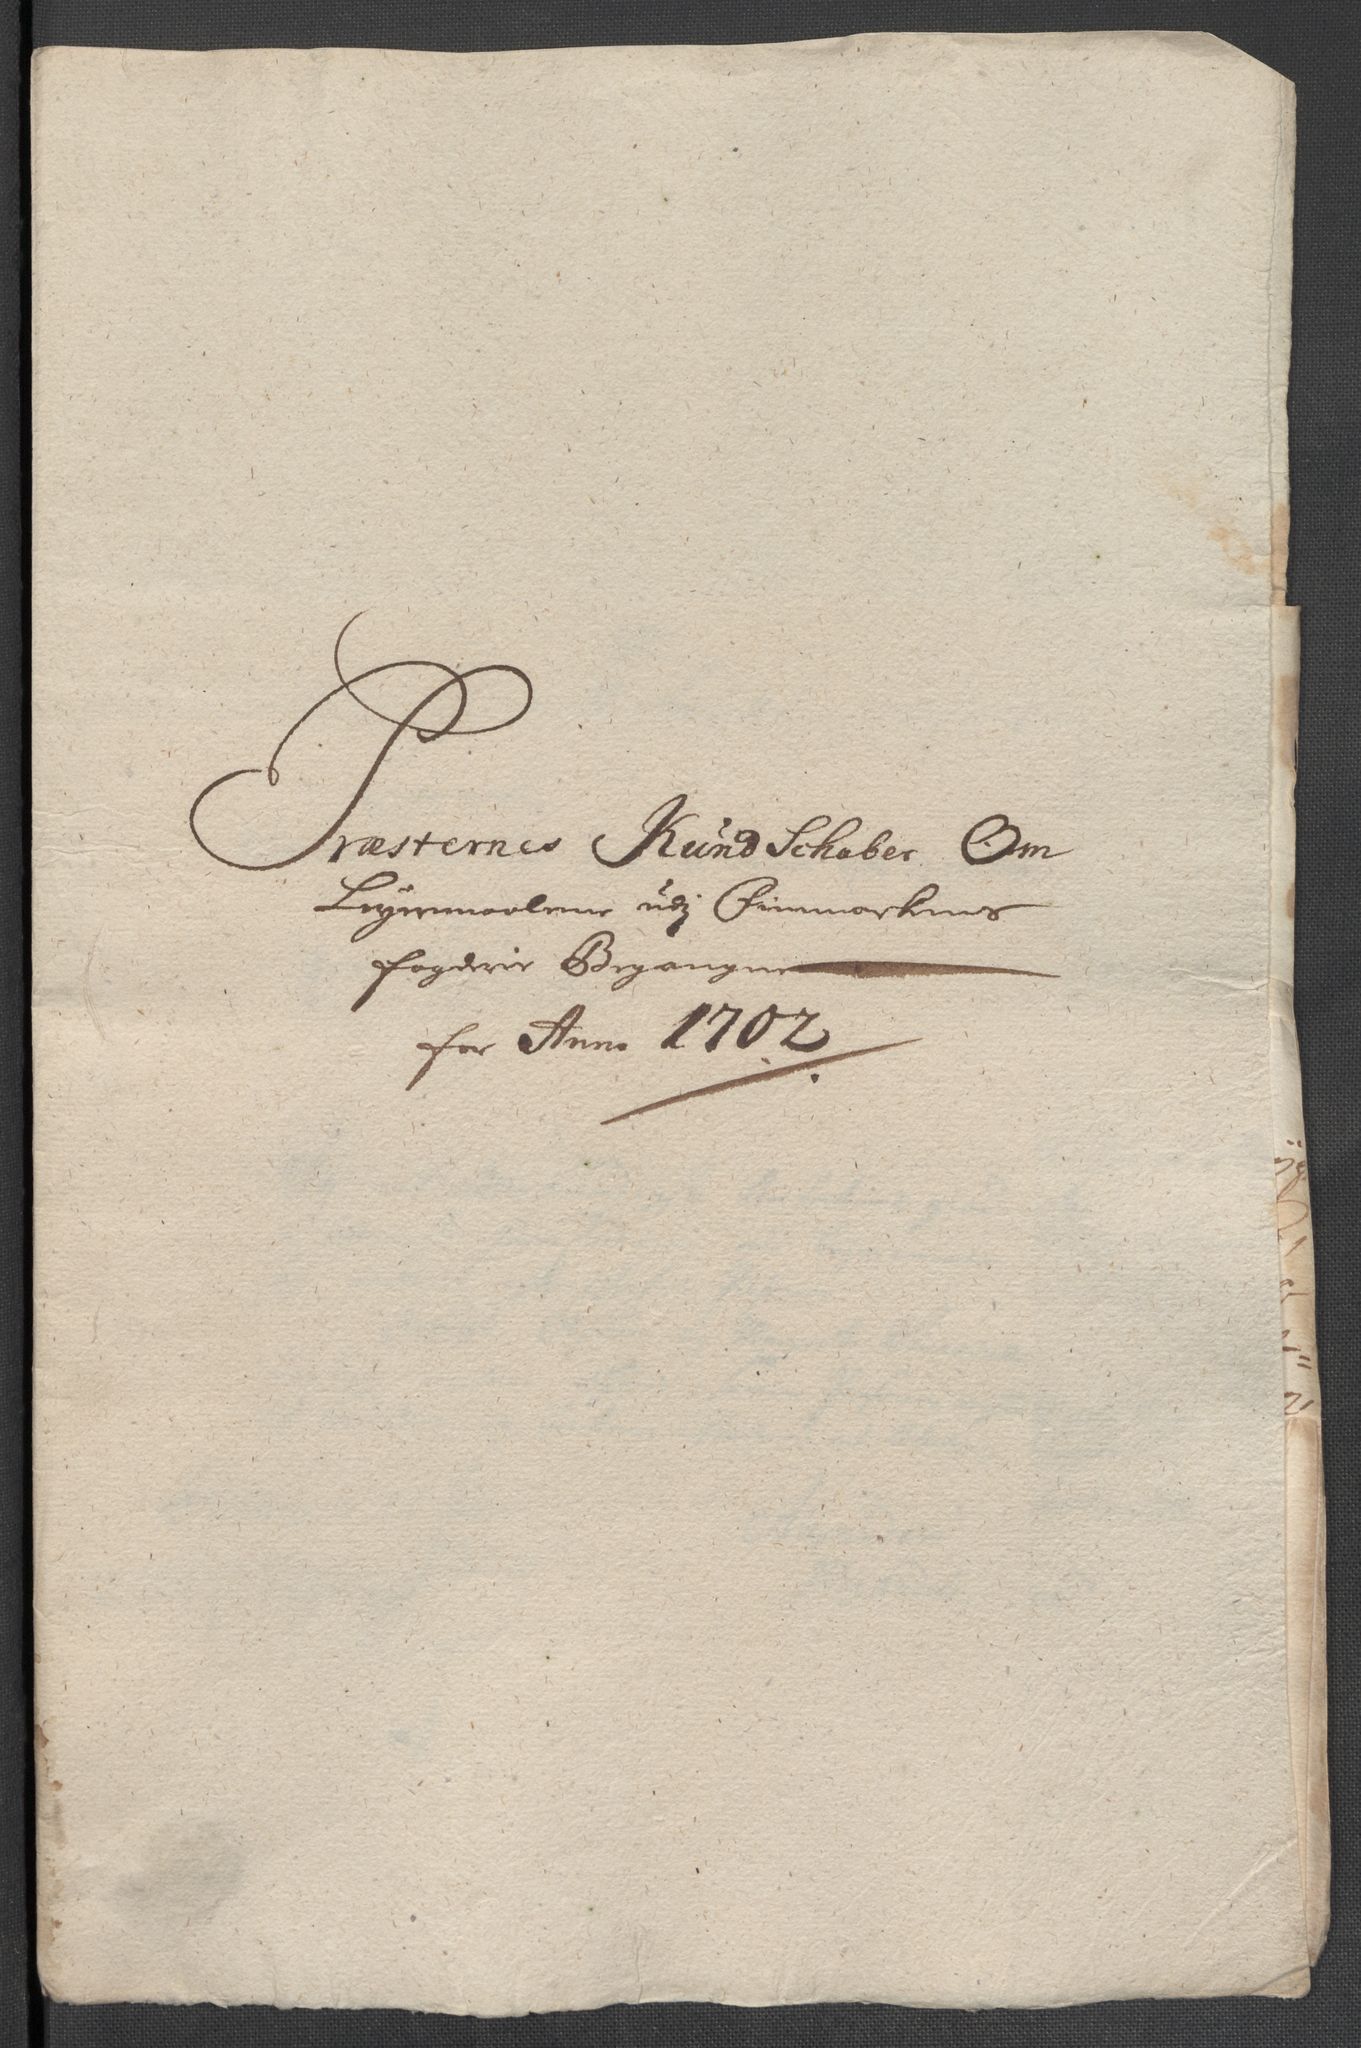 Præsternes KundSchaber Om
Leyermaalene udj Finmarkens
fogderie Begangne
for Anno 1702